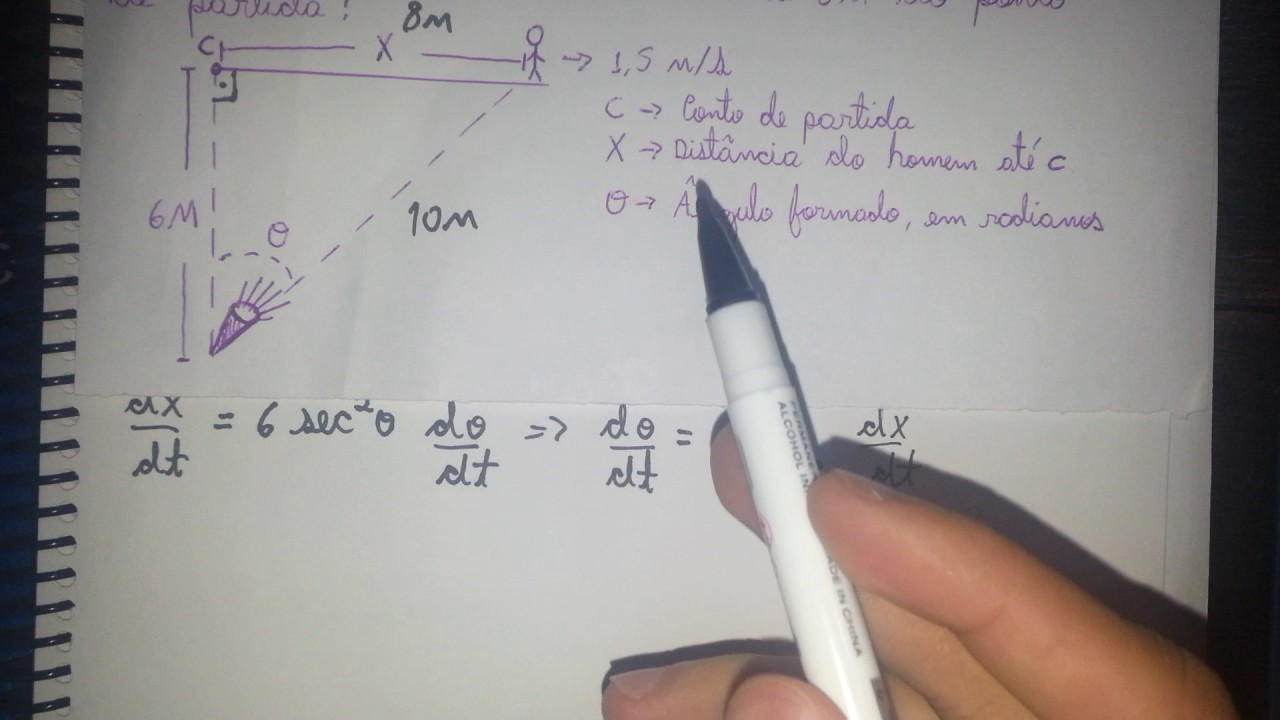 de partida?
8M
C X → 1,5 m/s
C → Ponto de partida
X → Distância do homem até c
θ → Ângulo formado, em radianos
6M θ 10M
dx/dt = 6 sec²θ dθ/dt => dθ/dt = dx/dt
ALCOHOL IN
MADE IN CHINA